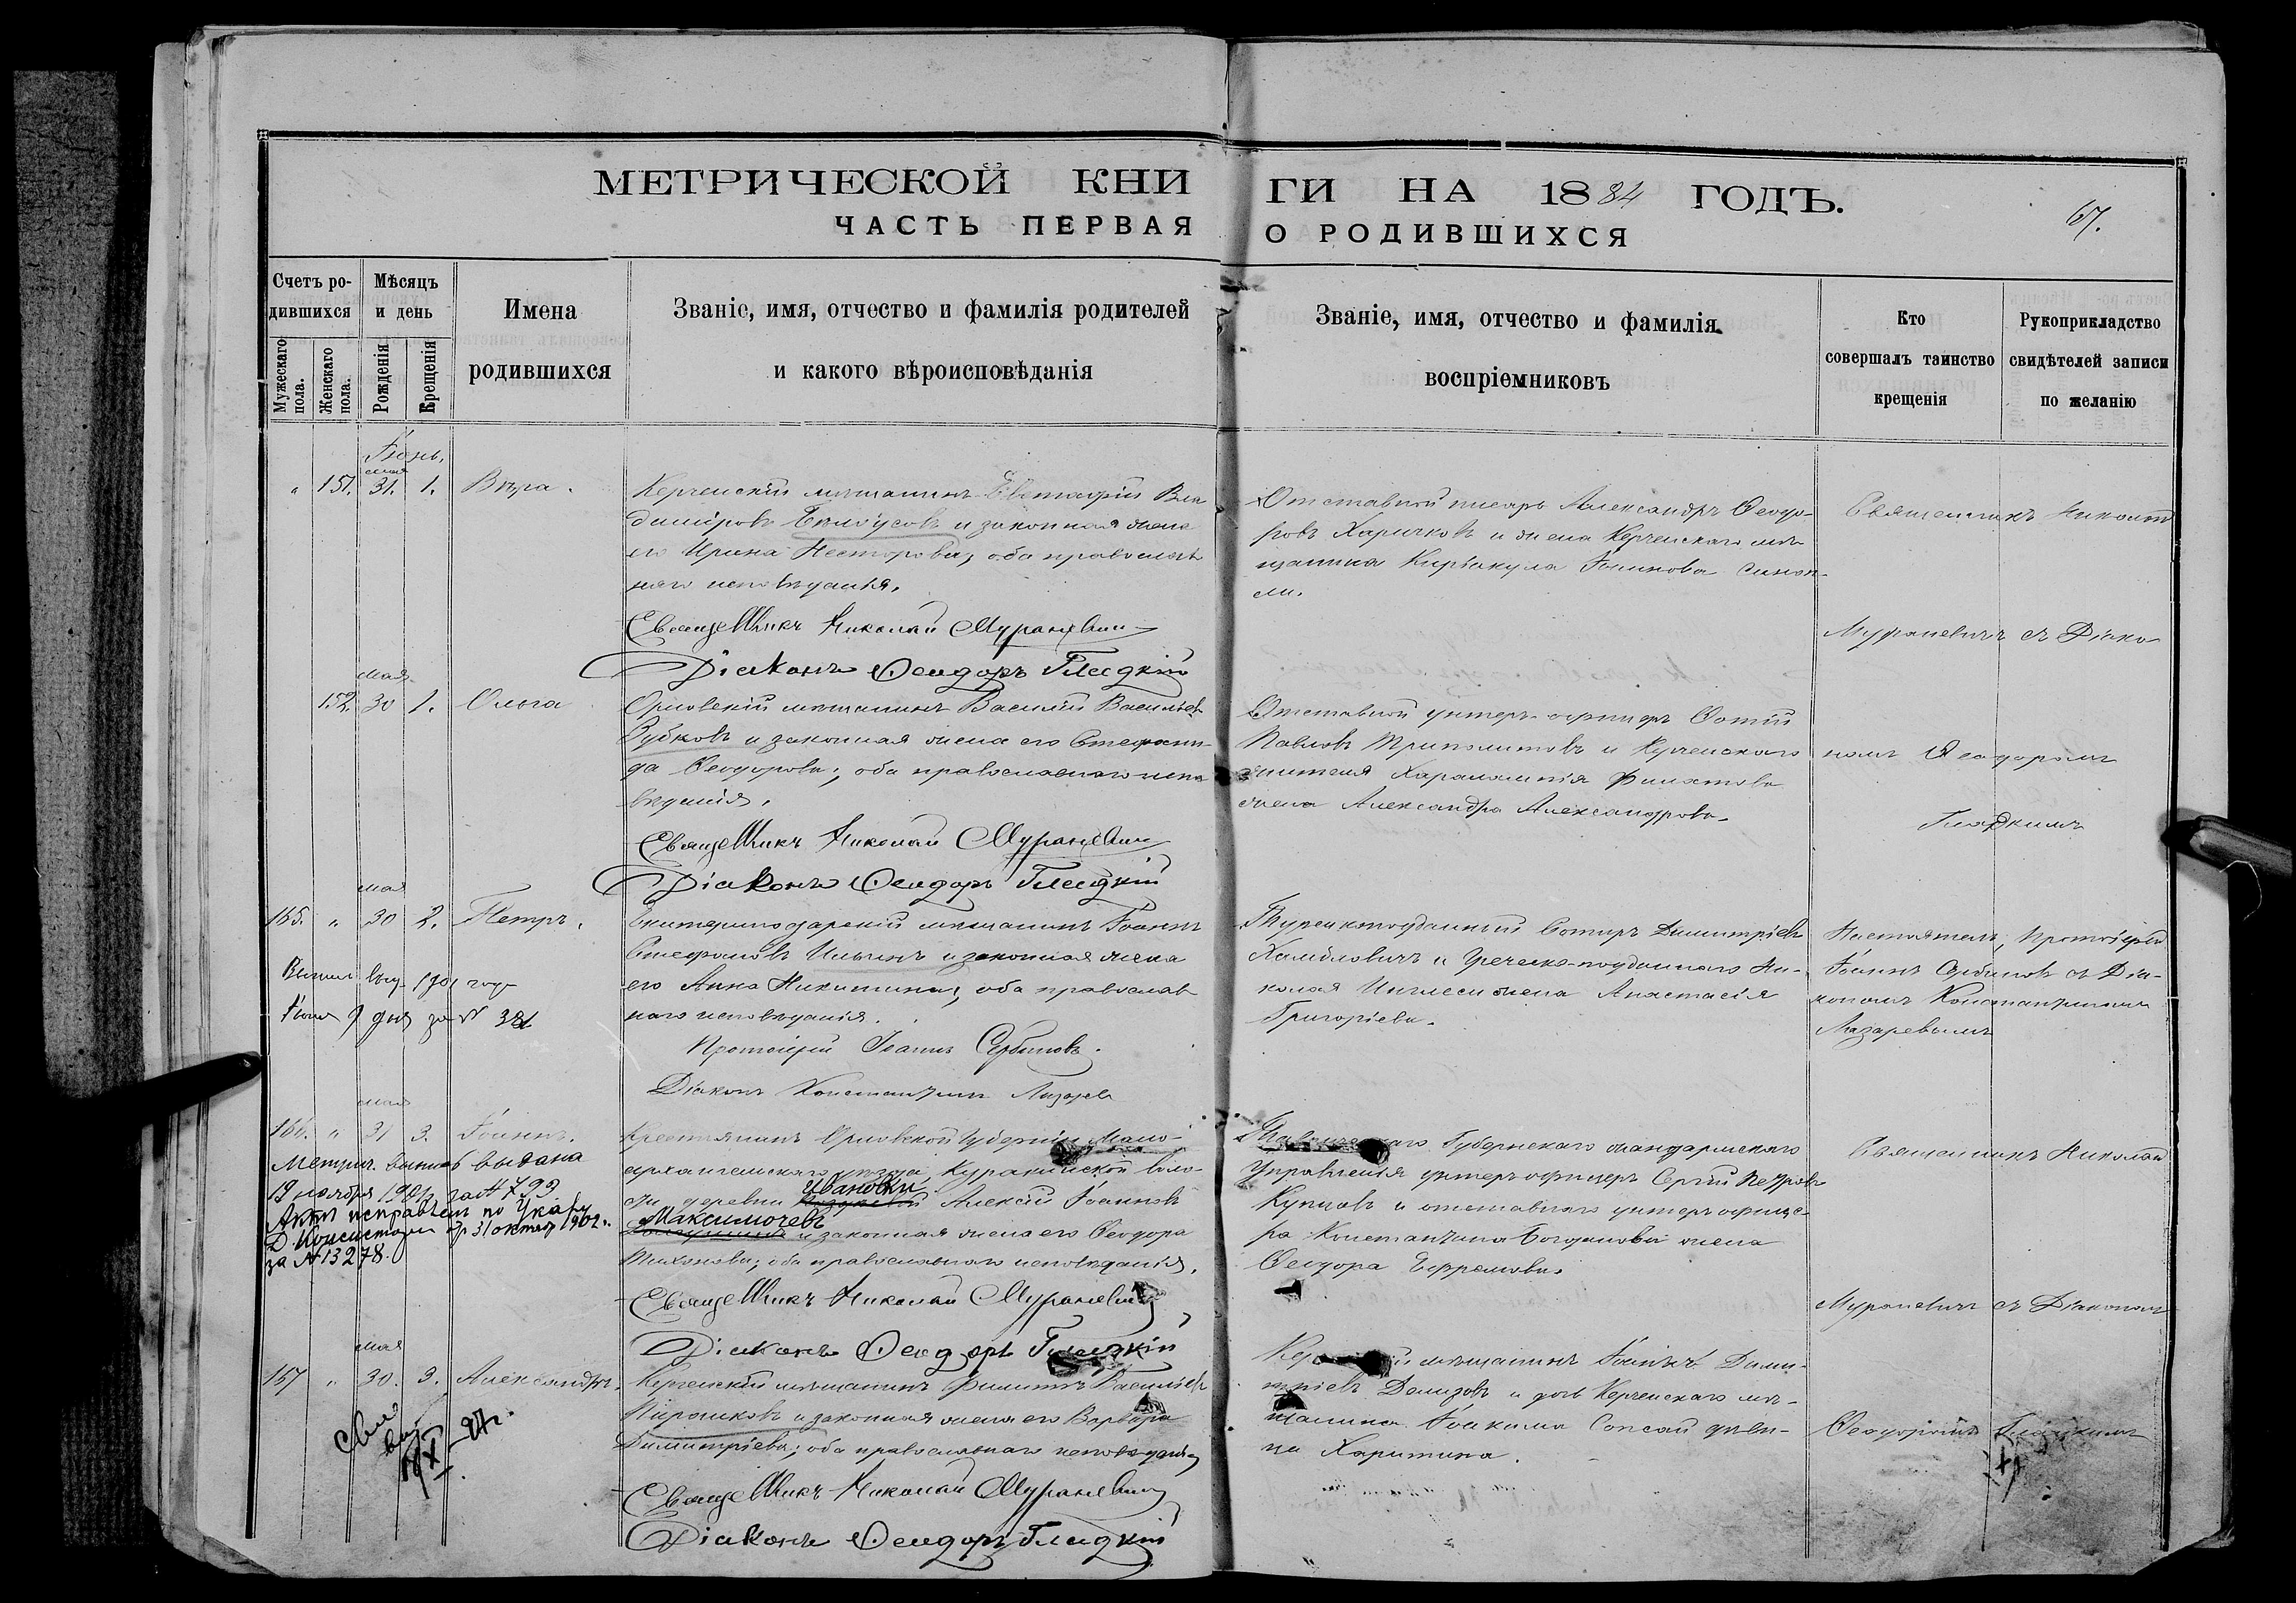 МЕТРИЧЕСКОЙ КНИ
ГИ НА 1884 ГОДЪ.
ЧАСТЬ ПЕРВАЯ
О РОДИВШИХСЯ
67.
Счетъ ро-
дившихся
Мужескаго
пола.
Женскаго
пола.
Мѣсяцъ
и день
Рожденія
Крещенія
Имена
родившихся
Званіе, имя, отчество и фамилія родителей
и какого вѣроисповѣданія
Званіе, имя, отчество и фамилія
воспріемниковъ
Кто
совершалъ таинство
крещенія
Рукоприкладство
свидѣтелей записи
по желанію
Іюнь.
мая
" 151. 31. 1. Вѣра.
Керченскій мѣщанинъ Евстафій Вла
диміровъ Бѣлоусовъ и законная жена
его Ирина Несторова, оба православ
наго исповѣданія.
Священникъ Николай Мураневич
Діаконъ Ѳеодоръ Гладкій
Отставной писарь Александръ Ѳеодо-
ровъ Харичковъ и жена Керченскаго мѣ-
щанина Киріакула Іоаннова
Священникъ Николай
Мураневичъ съ Діако
мая
152. 30 1. Ольга
Орловскій мѣщанинъ Василій Васильев
Зубковъ и законная жена его Стефани-
да Ѳеодорова; оба православнаго испо
вѣданія.
Священникъ Николай Мураневич
Діаконъ Ѳеодоръ Гладкій
Отставной унтеръ-офицеръ Фотій
Павловъ Триполитовъ и Керченскаго
жителя Харалампія Филатова
жена Александра Александрова.
номъ Ѳеодоромъ
Гладкимъ
мая
165. " 30 2. Петръ.
Екатеринодарскій мѣщанинъ Іоаннъ
Стефановъ Ильинъ и законная жена
его Анна Никитина, оба православ
наго исповѣданія.
Протоіерей Іоаннъ Сербиновъ.
Діаконъ Константинъ Лазарев
Турецкоподданный Сотиръ Димитріев
Хамбловичъ и Греческо-подданнаго Ни-
колая Инглеси жена Анастасія
Григоріева.
Настоятель, Протоіерей
Іоаннъ Сербиновъ съ Діа-
кономъ Константиномъ
Лазаревымъ
выд. 1901 года
9 дня за № 381
мая
166. " 31 3. Іоаннъ.
Метрич. выпись выдана
19 ноября 1901 г. за № 799
Актъ исправленъ по Указу
Д. Консисторіи от 31 октяб 1901 г.
за № 13278.
Крестьянинъ Орловской Губерніи Мало-
архангельскаго уѣзда Куракинской воло-
сти деревни Ивановки Алексій Іоанновъ
Максимочевъ и законная жена его Ѳеодора
Тихонова; оба православнаго исповѣданія.
Священникъ Николай Мураневич
Діаконъ Ѳеодоръ Гладкій
Губернскаго жандармскаго
Управленія унтеръ-офицеръ Сергій Петров
Купцовъ и отставнаго унтеръ офице-
ра Константина Богданова жена
Ѳеодора Ефремова.
Священникъ Николай
Мураневичъ съ Діакономъ
мая
167 " 30. 3. Александръ.
Керченскій мѣщанинъ Филиппъ Васильев
Пирожковъ и законная жена его Варвара
Димитріева; оба православнаго исповѣданія
Священникъ Николай Мураневич
Діаконъ Ѳеодоръ Гладкій
мѣщанинъ Іоаннъ Дими-
тріевъ Демизовъ и дочь Керченскаго мѣ-
щанина Іоакима Сопсай дѣви-
ца Харитина.
Ѳеодоромъ Гладкимъ